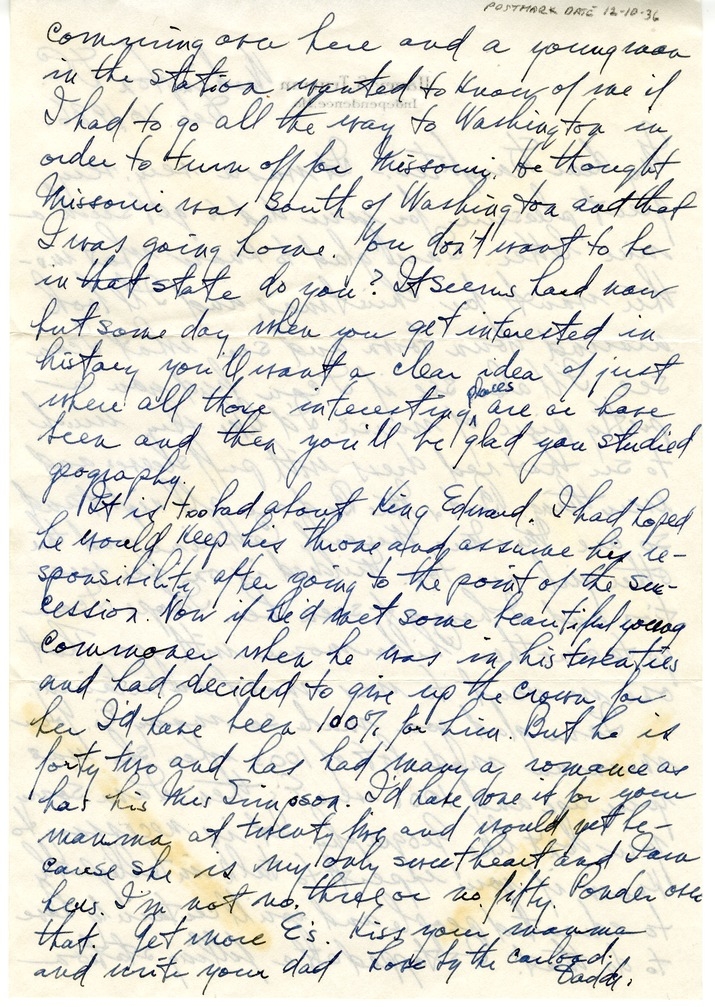 POSTMARK DATE 12-10-36
coming over here and a young man
in the station wanted to know of me if
I had to go all the way to Washington in
order to turn off for Missouri. He thought
Missouri was South of Washington and that
I was going home. You don't want to be
in that state do you? It seems hard now
but some day when you get interested in
history you'll want a clear idea of just
where all those interesting places are or have
been and then you'll be glad you studied
geography.
It is too bad about King Edward. I had hoped
he would keep his throne and assume his re-
sponsibility after going to the point of the suc-
cession. Now if he'd met some beautiful young
commoner when he was in his twenties
and had decided to give up the crown for
her I'd have been 100% for him. But he is
forty two and has had many a romance as
has his Mrs Simpson. I'd have done it for your
mamma at twenty five and would yet be-
cause she is my only sweetheart and I am
hers. I'm not no. three or no. fifty. Ponder over
that. Get more E's. Kiss your mamma
and write your dad Love by the carload.
Daddy.
Harry S. Truman
Independence, Mo.